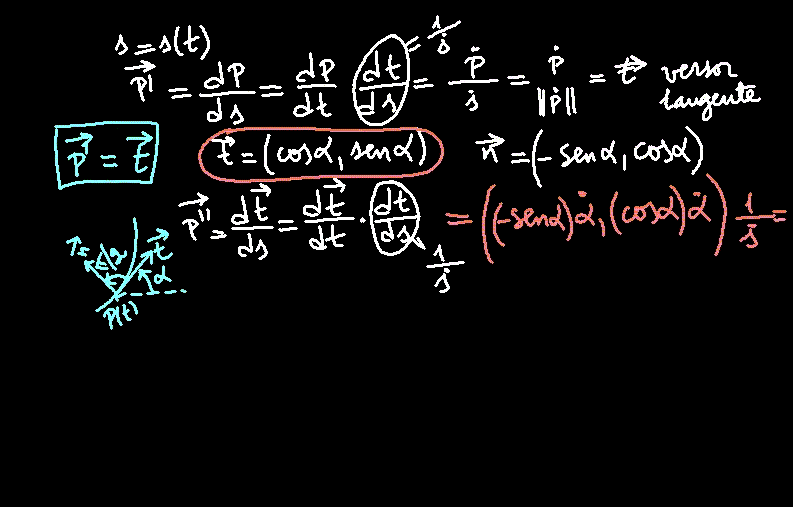 s = s(t)
p⃗' = dp/ds = dp/dt dt/ds = ṗ/ṡ = ṗ/||ṗ|| = t⃗ versor tangente
= 1/ṡ
p⃗' = t⃗
t⃗ = (cosα, senα)
n⃗ = (-senα, cosα)
p⃗'' = dt⃗/ds = dt⃗/dt · dt/ds = ((-senα)α̇, (cosα)α̇) 1/ṡ =
1/ṡ
t⃗
α
P(t)